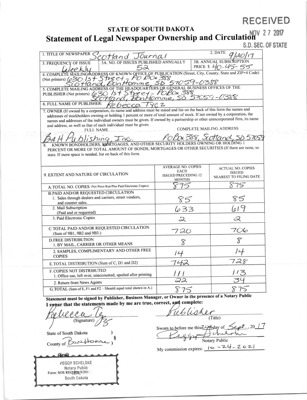 RECEIVED
NOV 27 2017
S.D. SEC. OF STATE
STATE OF SOUTH DAKOTA
Statement of Legal Newspaper Ownership and Circulation
1. TITLE OF NEWSPAPER Scotland Journal
2. DATE 9/20/17
3. FREQUENCY OF ISSUE Weekly
3A. NO. OF ISSUES PUBLISHED ANNUALLY 52
3B. ANNUAL SUBSCRIPTION PRICE $
4. COMPLETE MAILING ADDRESS OF KNOWN OFFICE OF PUBLICATION (Street, City, County, State and ZIP+4 Code)
(Not printers) 630 1st Street - PO Box 388
Scotland, Bon Homme, SD 57059-0388
5. COMPLETE MAILING ADDRESS OF THE HEADQUARTERS OR GENERAL BUSINESS OFFICES OF THE
PUBLISHER (Not printer) 630 1st Street - PO Box 388
Scotland, Bon Homme, SD 57059-0388
6. FULL NAME OF PUBLISHER: Rebecca Tycz
7. OWNER (If owned by a corporation, its name and address must be stated and also on the back of this form the names and
addresses of stockholders owning or holding 1 percent or more of total amount of stock. If not owned by a corporation, the
names and address of the individual owners must be given. If owned by a partnership or other unincorporated firm, its name
and address, as well as that of each individual must be given.
FULL NAME
COMPLETE MAILING ADDRESS
B&H Publishing, Inc.
PO Box 388, Scotland, SD 57059
8. KNOWN BONDHOLDERS, MORTGAGES, AND OTHER SECURITY HOLDERS OWNING OR HOLDING 1
PERCENT OR MORE OF TOTAL AMOUNT OF BONDS, MORTGAGES OR OTHER SECURITIES (If there are none, so
state. If more space is needed, list on back of this form).
9. EXTENT AND NATURE OF CIRCULATION
AVERAGE NO. COPIES EACH ISSUED PRECEEDING 12 MONTHS
ACTUAL NO. COPIES ISSUED NEAREST TO FILING DATE
A. TOTAL NO. COPIES 875 875
B. PAID AND/OR REQUESTED CIRCULATION
1. Sales through dealers and carriers, street vendors, and counter sales. 85 85
2. Mail Subscription (Paid and or requested) 633 619
3. Paid Electronic Copies 2 2
C. TOTAL PAID AND/OR REQUESTED CIRCULATION (Sum of 9B1, 9B2 and 9B3) 720 706
D. FREE DISTRIBUTION
1. BY MAIL, CARRIER OR OTHER MEANS 8 8
2. SAMPLES, COMPLIMENTARY AND OTHER FREE COPIES 14 14
E. TOTAL DISTRIBUTION (Sum of C, D1 and D2) 742 728
F. COPIES NOT DISTRIBUTED
1. Office use, left over, unaccounted, spoiled after printing 111 113
2. Return from News Agents 22 34
G. TOTAL (Sum of E, F1 and F2 - Should equal total shown in A.) 875 875
Statement must be signed by Publisher, Business Manager, or Owner in the presence of a Notary Public
I swear that the statements made by me are true, correct, and complete:
Rebecca Tycz
(Signature)
Publisher
(Title)
State of South Dakota )
County of Bon Homme )
Sworn to before me this day of Sept. 2017
Notary Public
My commission expires: 10-24-2021
PEGGY SCHELSKE
Notary Public
South Dakota